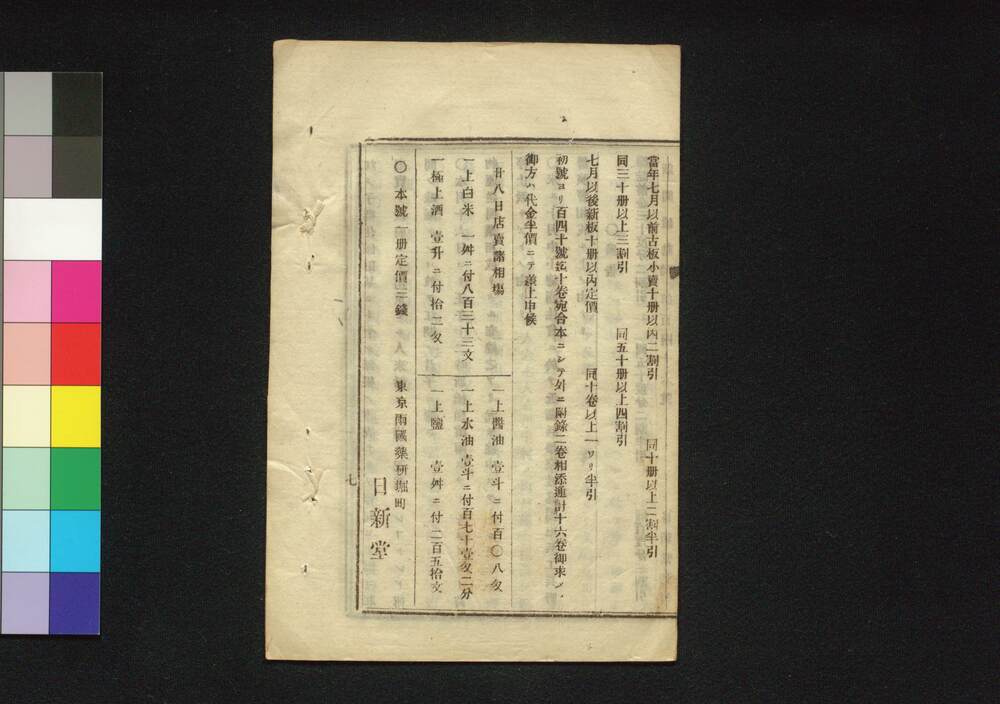 當年七月以前古板小賣十册以內二割引 同十册以上二割半引
同三十册以上三割引 同五十册以上四割引
七月以後新板十册以內定價 同十卷以上一ワリ半引
初號ヨリ百四十號迄十卷宛合本ニシテ外ニ附錄二卷相添通計十六卷御求ノ
御方ハ代金半價ニテ差上申候
廿八日店賣諸相塲
一上白米 一舛ニ付八百三十三文
一極上酒 壹升ニ付拾二匁
一上醬油 壹斗ニ付百〇八匁
一上水油 壹斗ニ付百七十壹匁二分
一上鹽 壹舛ニ付二百五拾文
〇本號一册定價三錢 東京兩國藥研堀町
日新堂
七